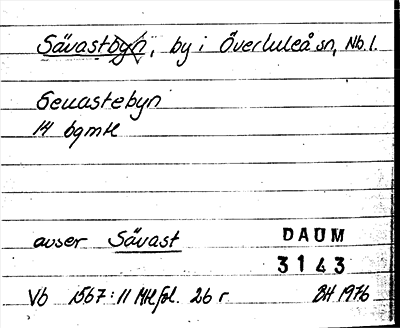 Sävastbyn, by i Överluleå sn, Nb. l.
Seuastebyn
14 bgmtl
avser Sävast
DAUM
3143
Vb 1567:11 Mtl fol. 26 r BH 1976